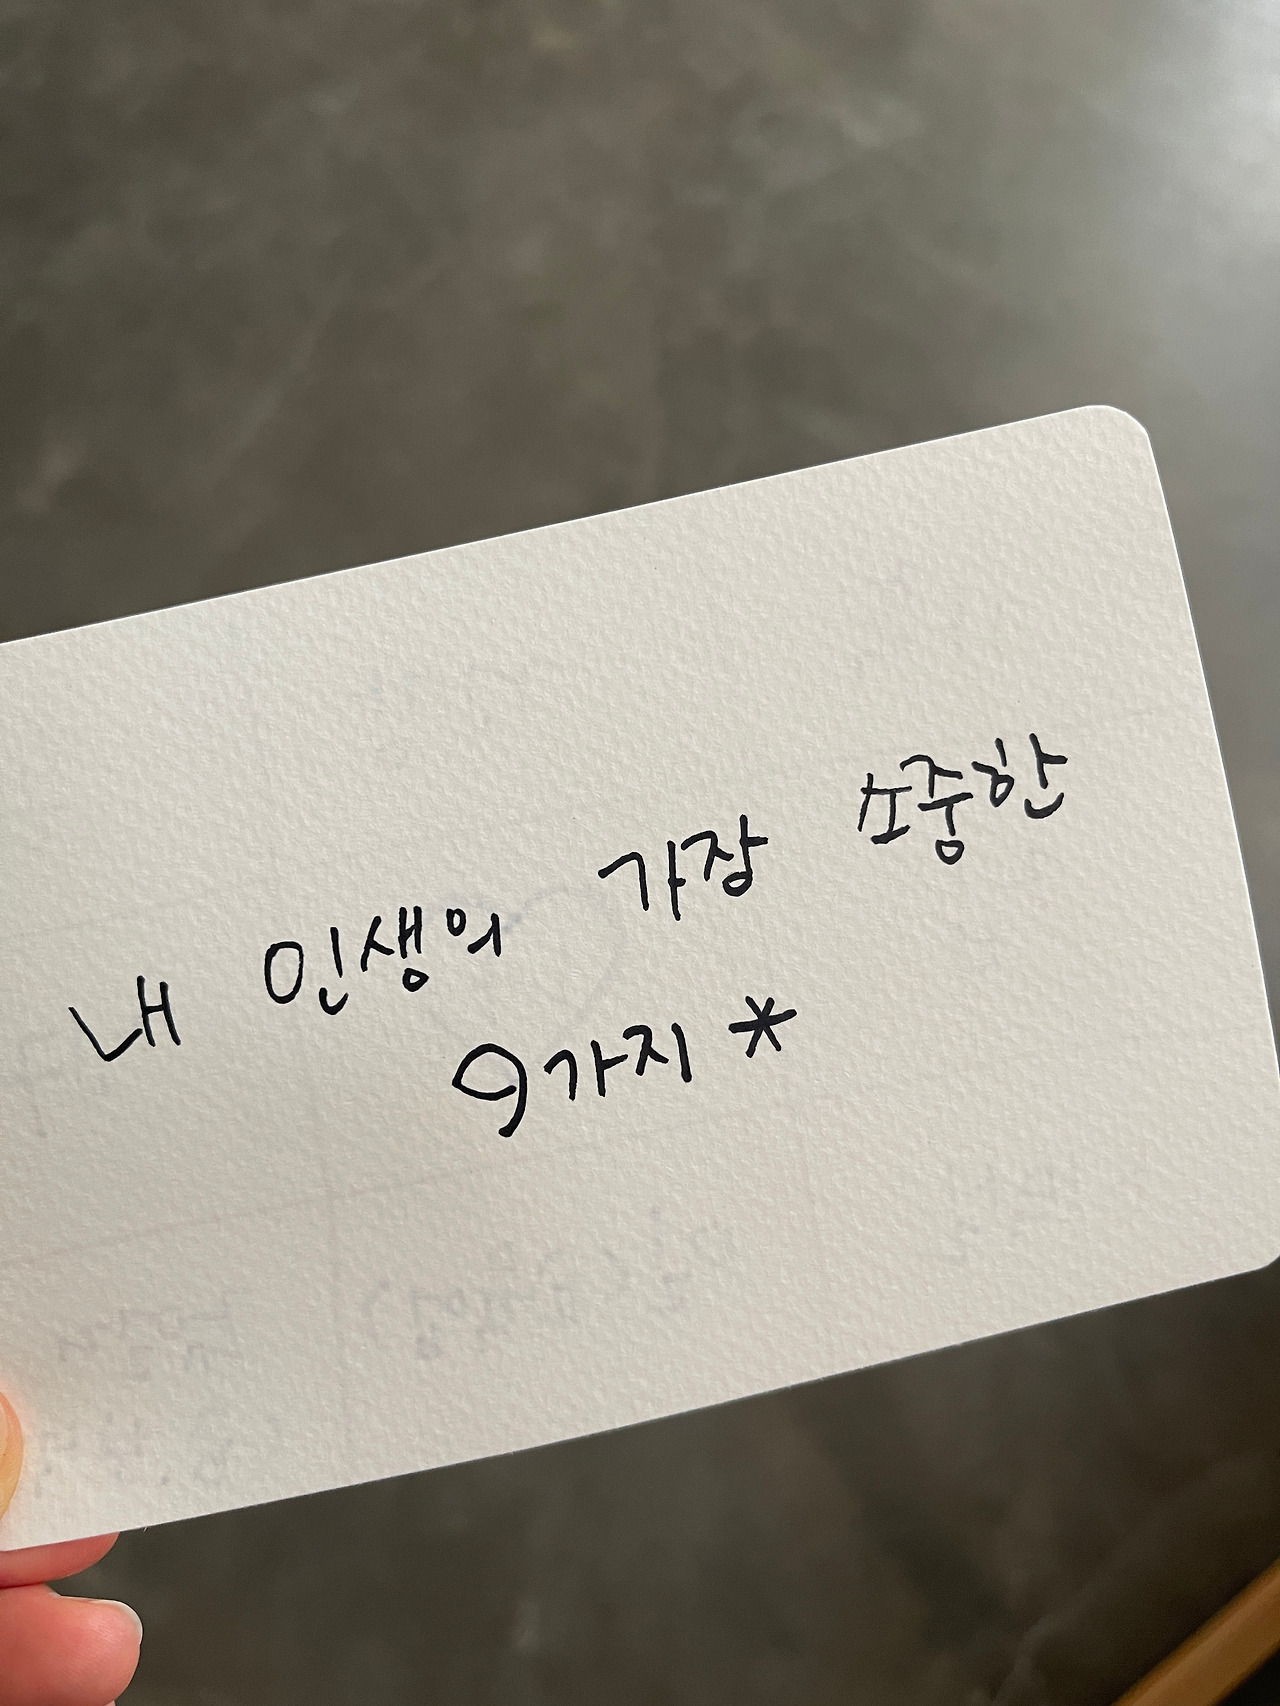 내 인생의 가장 소중한
9가지 *